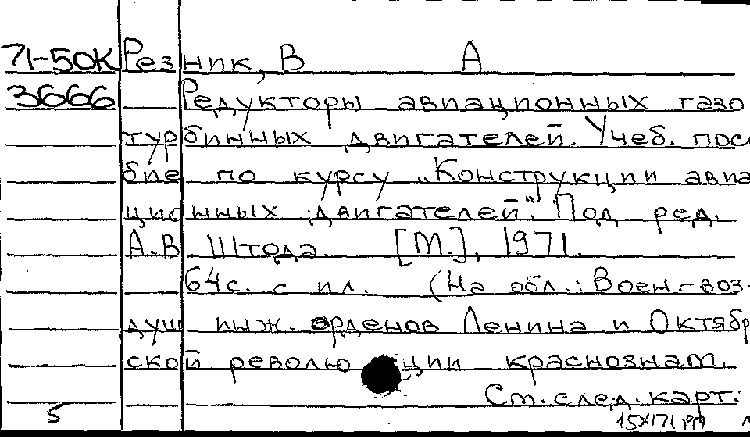 71-50К Резник, В А
3666 Редукторы авиационных газо
турбинных двигателей. Учеб. посо
бие по курсу „Конструкции авиа
ционных двигателей". Под ред.
А.В Штода. [М.], 1971.
64с. с ил. (На обл.: Воен.-воз-
душ инж. орденов Ленина и Октябр
ской револю ции краснознам.
См. след. карт.
5